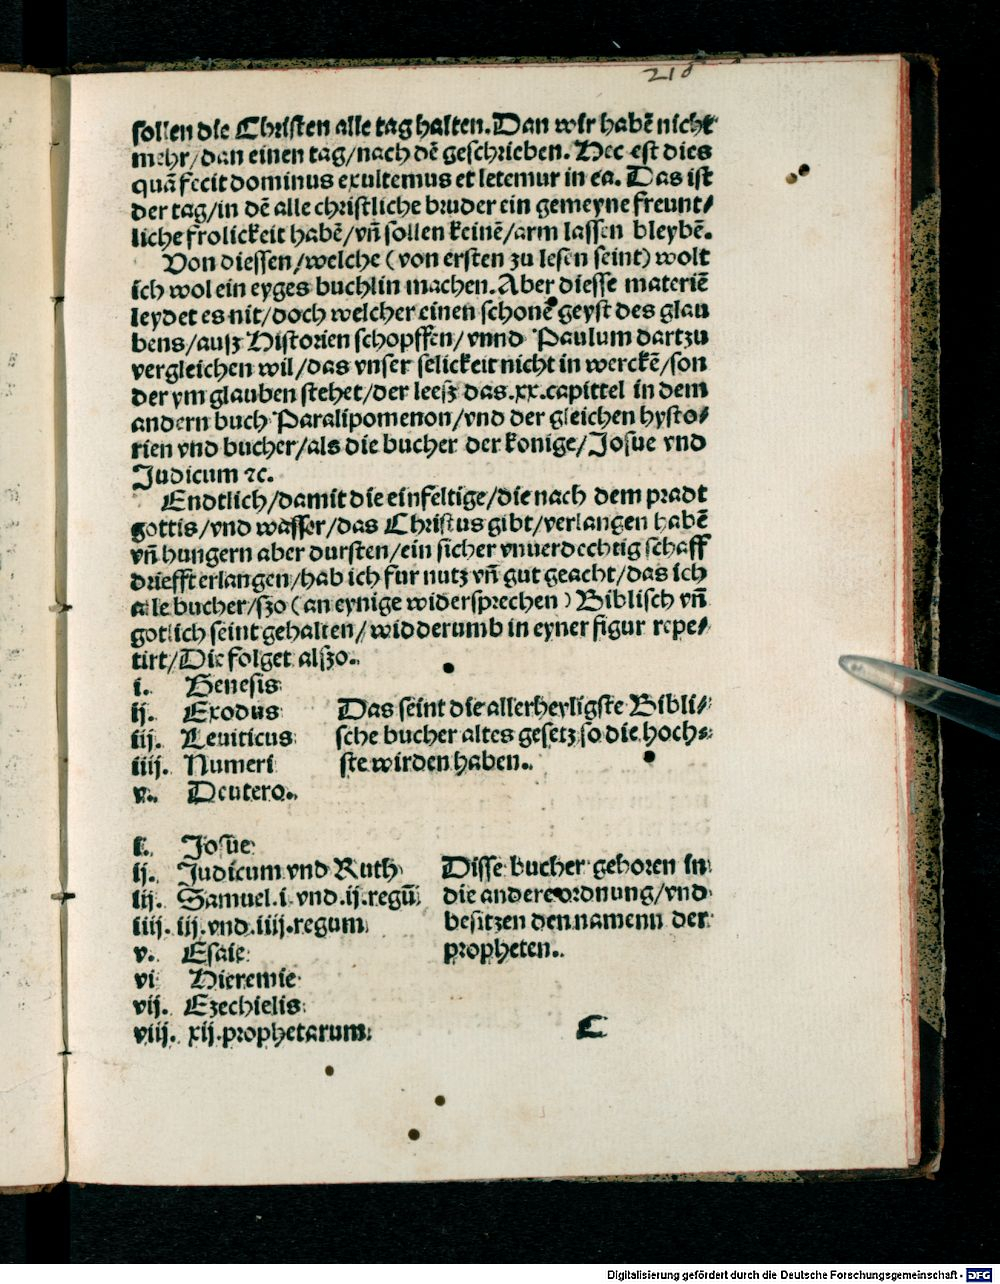 218
sollen die Christen alle tag halten. Dan wir habē nicht
mehr/dan einen tag/nach dē geschrieben. Hec est dies
quā fecit dominus exultemus et letemur in ea. Das ist
der tag/in dē alle christliche bruder ein gemeyne freunt/
liche frolickeit habē/vn̄ sollen keinē/arm lassen bleybē.
Von diessen/welche (von ersten zu lesen seint) wolt
ich wol ein eyges buchlin machen. Aber diesse materiē
leydet es nit/doch welcher einen schonē geyst des glau
bens/ausz Historien schopffen/vnnd Paulum dartzu
vergleichen wil/das vnser selickeit nicht in werckē/son
der ym glauben stehet/der leesz das.xx.capittel in dem
andern buch Paralipomenon/vnd der gleichen hysto/
rien vnd bucher/als die bucher der konige/Josue vnd
Judicum ⁊c.
Endtlich/damit die einfeltige/die nach dem pradt
gottis/vnd wasser/das Christus gibt/verlangen habē
vn̄ hungern aber dursten/ein sicher vnuerdechtig schaff
driefft erlangen/hab ich fur nutz vn̄ gut geacht/das ich
alle bucher/szo (an eynige widersprechen) Biblisch vn̄
gotlich seint gehalten/widderumb in eyner figur repe/
tirt/Die folget alszo.
i. Genesis
ij. Exodus Das seint die allerheyligste Bibli/
iij. Leuiticus sche bucher altes gesetz so die hoch/
iiij. Numeri ste wirden haben.
v. Deutero.
i. Josue
ij. Judicum vnd Ruth Disse bucher gehoren in
iij. Samuel.i. vnd.ij.regū die andere ordnung/vnd
iiij. iij.vnd.iiij.regum besitzen den namenn der
v. Esaie propheten.
vi Hieremie
vij. Ezechielis
viij. xij.prophetarum C
Digitalisierung gefördert durch die Deutsche Forschungsgemeinschaft - DFG